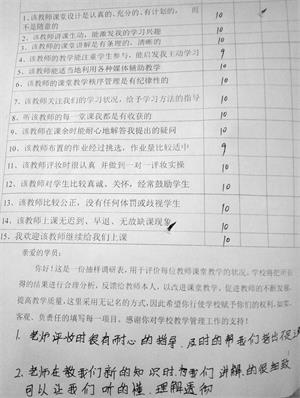 1、该教师课堂设计是认真的、充分的、有计划的,而 10
不是随意的
2、该教师讲课生动,能激发我的学习兴趣 10
3、该教师的课堂讲解是有条理的、清晰的 10
4、该教师的教学能注重学生参与,能启发我主动学习 9
5、该教师能适当地利用各种媒体辅助教学 10
6、该教师的课堂教学秩序管理是有纪律性的 10
7、该教师关注我们的学习状况,给予学习方法的指导 10
8、听该教师的每一堂课我都是有收获的 10
9、该教师在课余时能耐心地解答我提出的疑问 10
10、该教师布置的作业经过挑选,作业量比较适中 9
11、该教师评改时很认真 并做到一对一评改实操 10
12、该教师对学生比较真诚、关怀,经常鼓励学生 10
13、该教师比较公正,没有任何体罚或歧视学生 10
14、该教师上课无迟到、早退、无放缺课现象 10
15、我欢迎该教师继续给我们上课 10
亲爱的学员:
你好!这是一份抽样调研表,用于评价每位教师课堂教学的状况。学校将把所获
得的结果进行合理分析,反馈给教师本人,以改进课堂教学,促进教师的不断发展,
提高教学质量,这里采用无记名的方式,因此希望你行使学校赋予你们的权利,如实、
客观、负责任的填写每一项目。感谢你对学校教学管理工作的支持!
1. 老师评改时很有耐心的指导,及时的帮我们指出
2. 老师在教我们新的知识时,为我们讲解的很细致
可以让我们听的懂、理解透彻